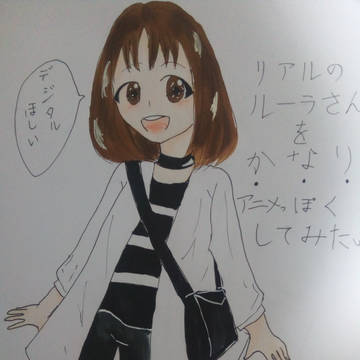 デジタル
ほしい
リアルの
ルーラさん
を
かなり
アニメっぽく
してみた。